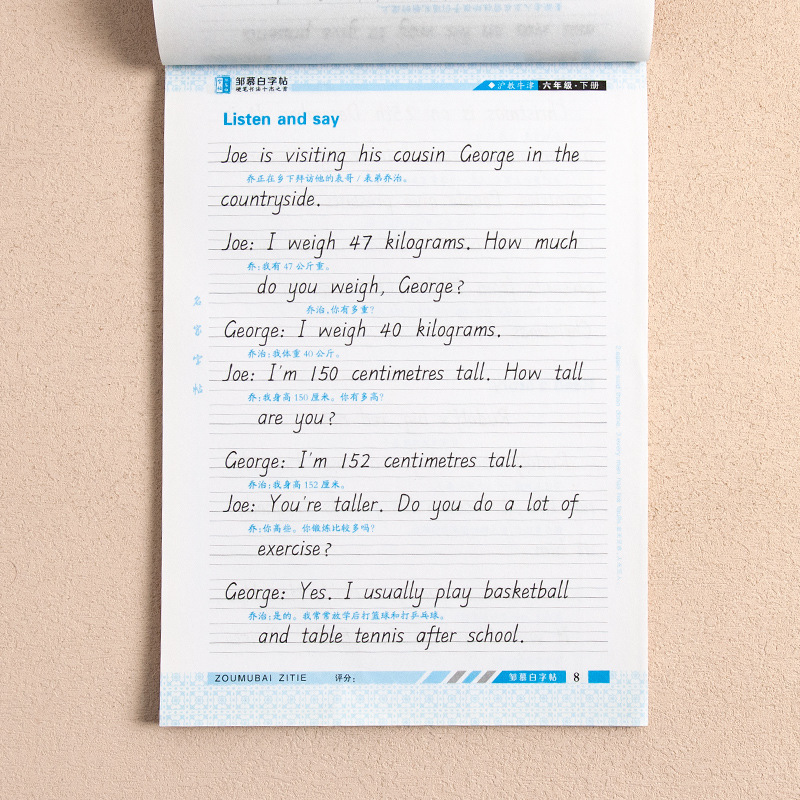 邹慕白字帖
硬笔书法十杰之首
沪教牛津 六年级·下册
Listen and say
Joe is visiting his cousin George in the
乔正在乡下拜访他的表哥/表弟乔治。
countryside.
Joe: I weigh 47 kilograms. How much
乔:我有47公斤重。
do you weigh, George?
乔治,你有多重?
George: I weigh 40 kilograms.
乔治:我体重40公斤。
Joe: I'm 150 centimetres tall. How tall
乔:我身高150厘米。你有多高?
are you?
George: I'm 152 centimetres tall.
乔治:我身高152厘米。
Joe: You're taller. Do you do a lot of
乔:你高些。你锻炼比较多吗?
exercise?
George: Yes. I usually play basketball
乔治:是的。我常常放学后打篮球和打乒乓球。
and table tennis after school.
名家字帖
ZOUMUBAI ZITIE 评分: 邹慕白字帖 8